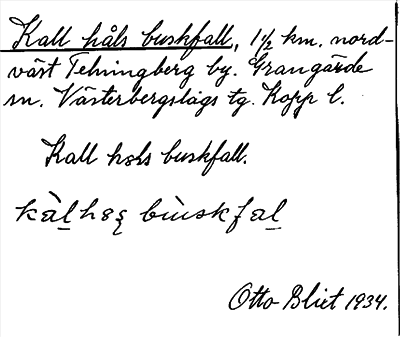 Kall håls buskfall, 1½ km. nord-
väst Telningberg by. Grangärde
sn. Västerbergslags tg. Kopp l.
Kall hols buskfall.
kàl hoʂ bùskfal
Otto Blixt 1934.